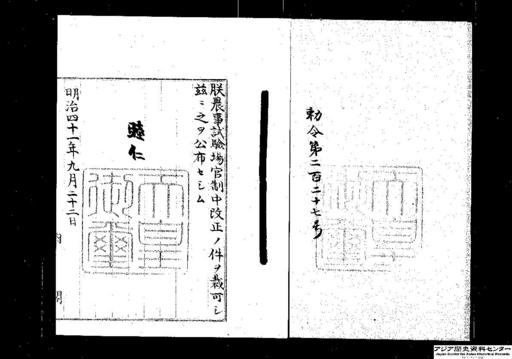 勅令第二百二十七号
朕農事試験場官制中改正ノ件ヲ裁可シ
茲ニ之ヲ公布セシム
睦仁
天皇
御璽
明治四十一年九月二十二日
内閣
アジア歴史資料センター
Japan Center for Asian Historical Records